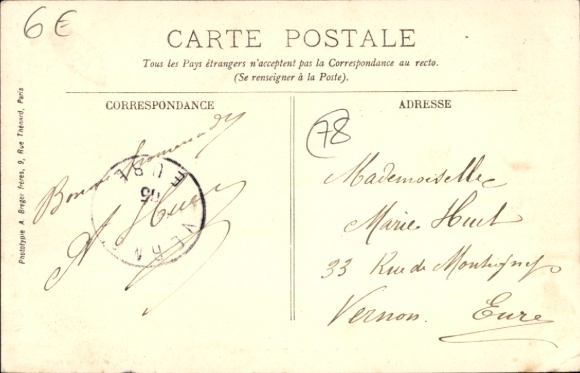 6€
CARTE POSTALE
Tous les Pays étrangers n'acceptent pas la Correspondance au recto.
(Se renseigner à la Poste).
CORRESPONDANCE
ADRESSE
78
Phototypie A. Breger Frères, 9, Rue Thénard, Paris
Bonne promenade
A Huet
EURE
05
VERN
Mademoiselle
Marie Huet
33 Rue de Montigny
Vernon. Eure